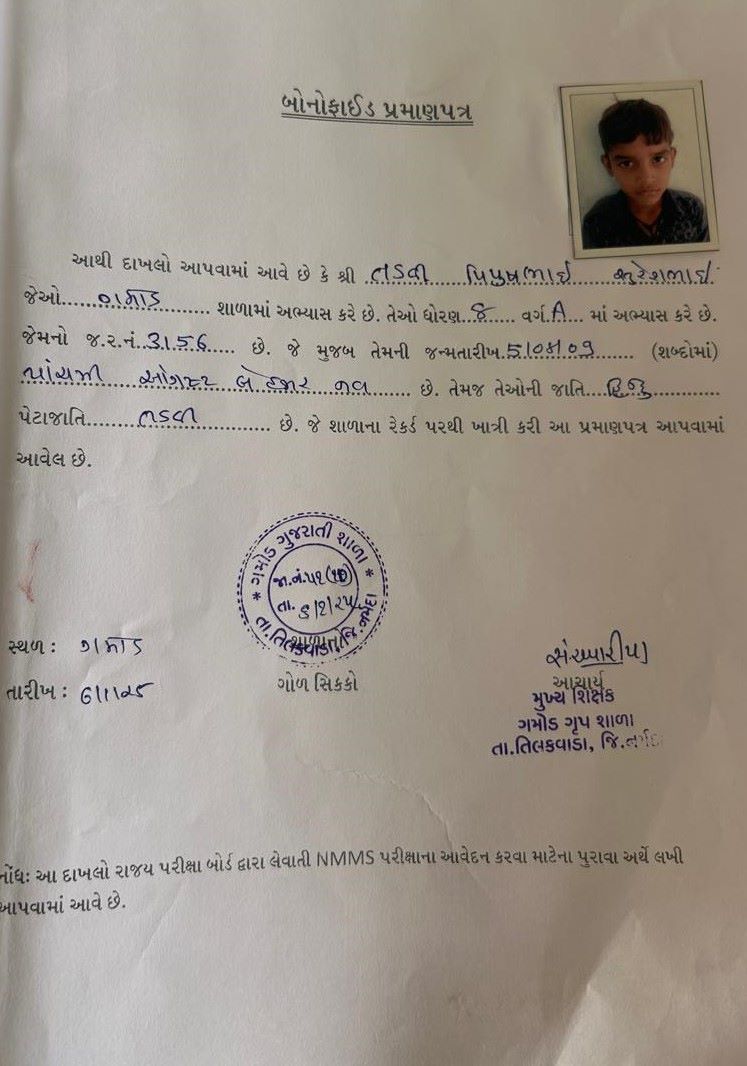 બોનોફાઈડ પ્રમાણપત્ર
આથી દાખલો આપવામાં આવે છે કે શ્રી તડવી પિયુષભાઈ સુરેશભાઈ
જેઓ ગમોડ શાળામાં અભ્યાસ કરે છે. તેઓ ધોરણ 8 વર્ગ A માં અભ્યાસ કરે છે.
જેમનો જ.ર.નં. 3156 છે. જે મુજબ તેમની જન્મતારીખ (શબ્દોમાં)
પાંચમી ઓગસ્ટ બે હજાર નવ છે. તેમજ તેઓની જાતિ હિન્દુ
પેટાજાતિ તડવી છે. જે શાળાના રેકર્ડ પરથી ખાત્રી કરી આ પ્રમાણપત્ર આપવામાં
આવેલ છે.
ગમોડ ગુજરાતી શાળા
તા.તિલકવાડા, જિ.નર્મદા
સ્થળ : ગમોડ
તારીખ : 6/1/25
ગોળ સિકકો
આચાર્ય
મુખ્ય શિક્ષક
ગમોડ ગૃપ શાળા
તા.તિલકવાડા, જિ.નર્મદા
નોંધ: આ દાખલો રાજય પરીક્ષા બોર્ડ દ્વારા લેવાતી NMMS પરીક્ષાના આવેદન કરવા માટેના પુરાવા અર્થે લખી
આપવામાં આવે છે.